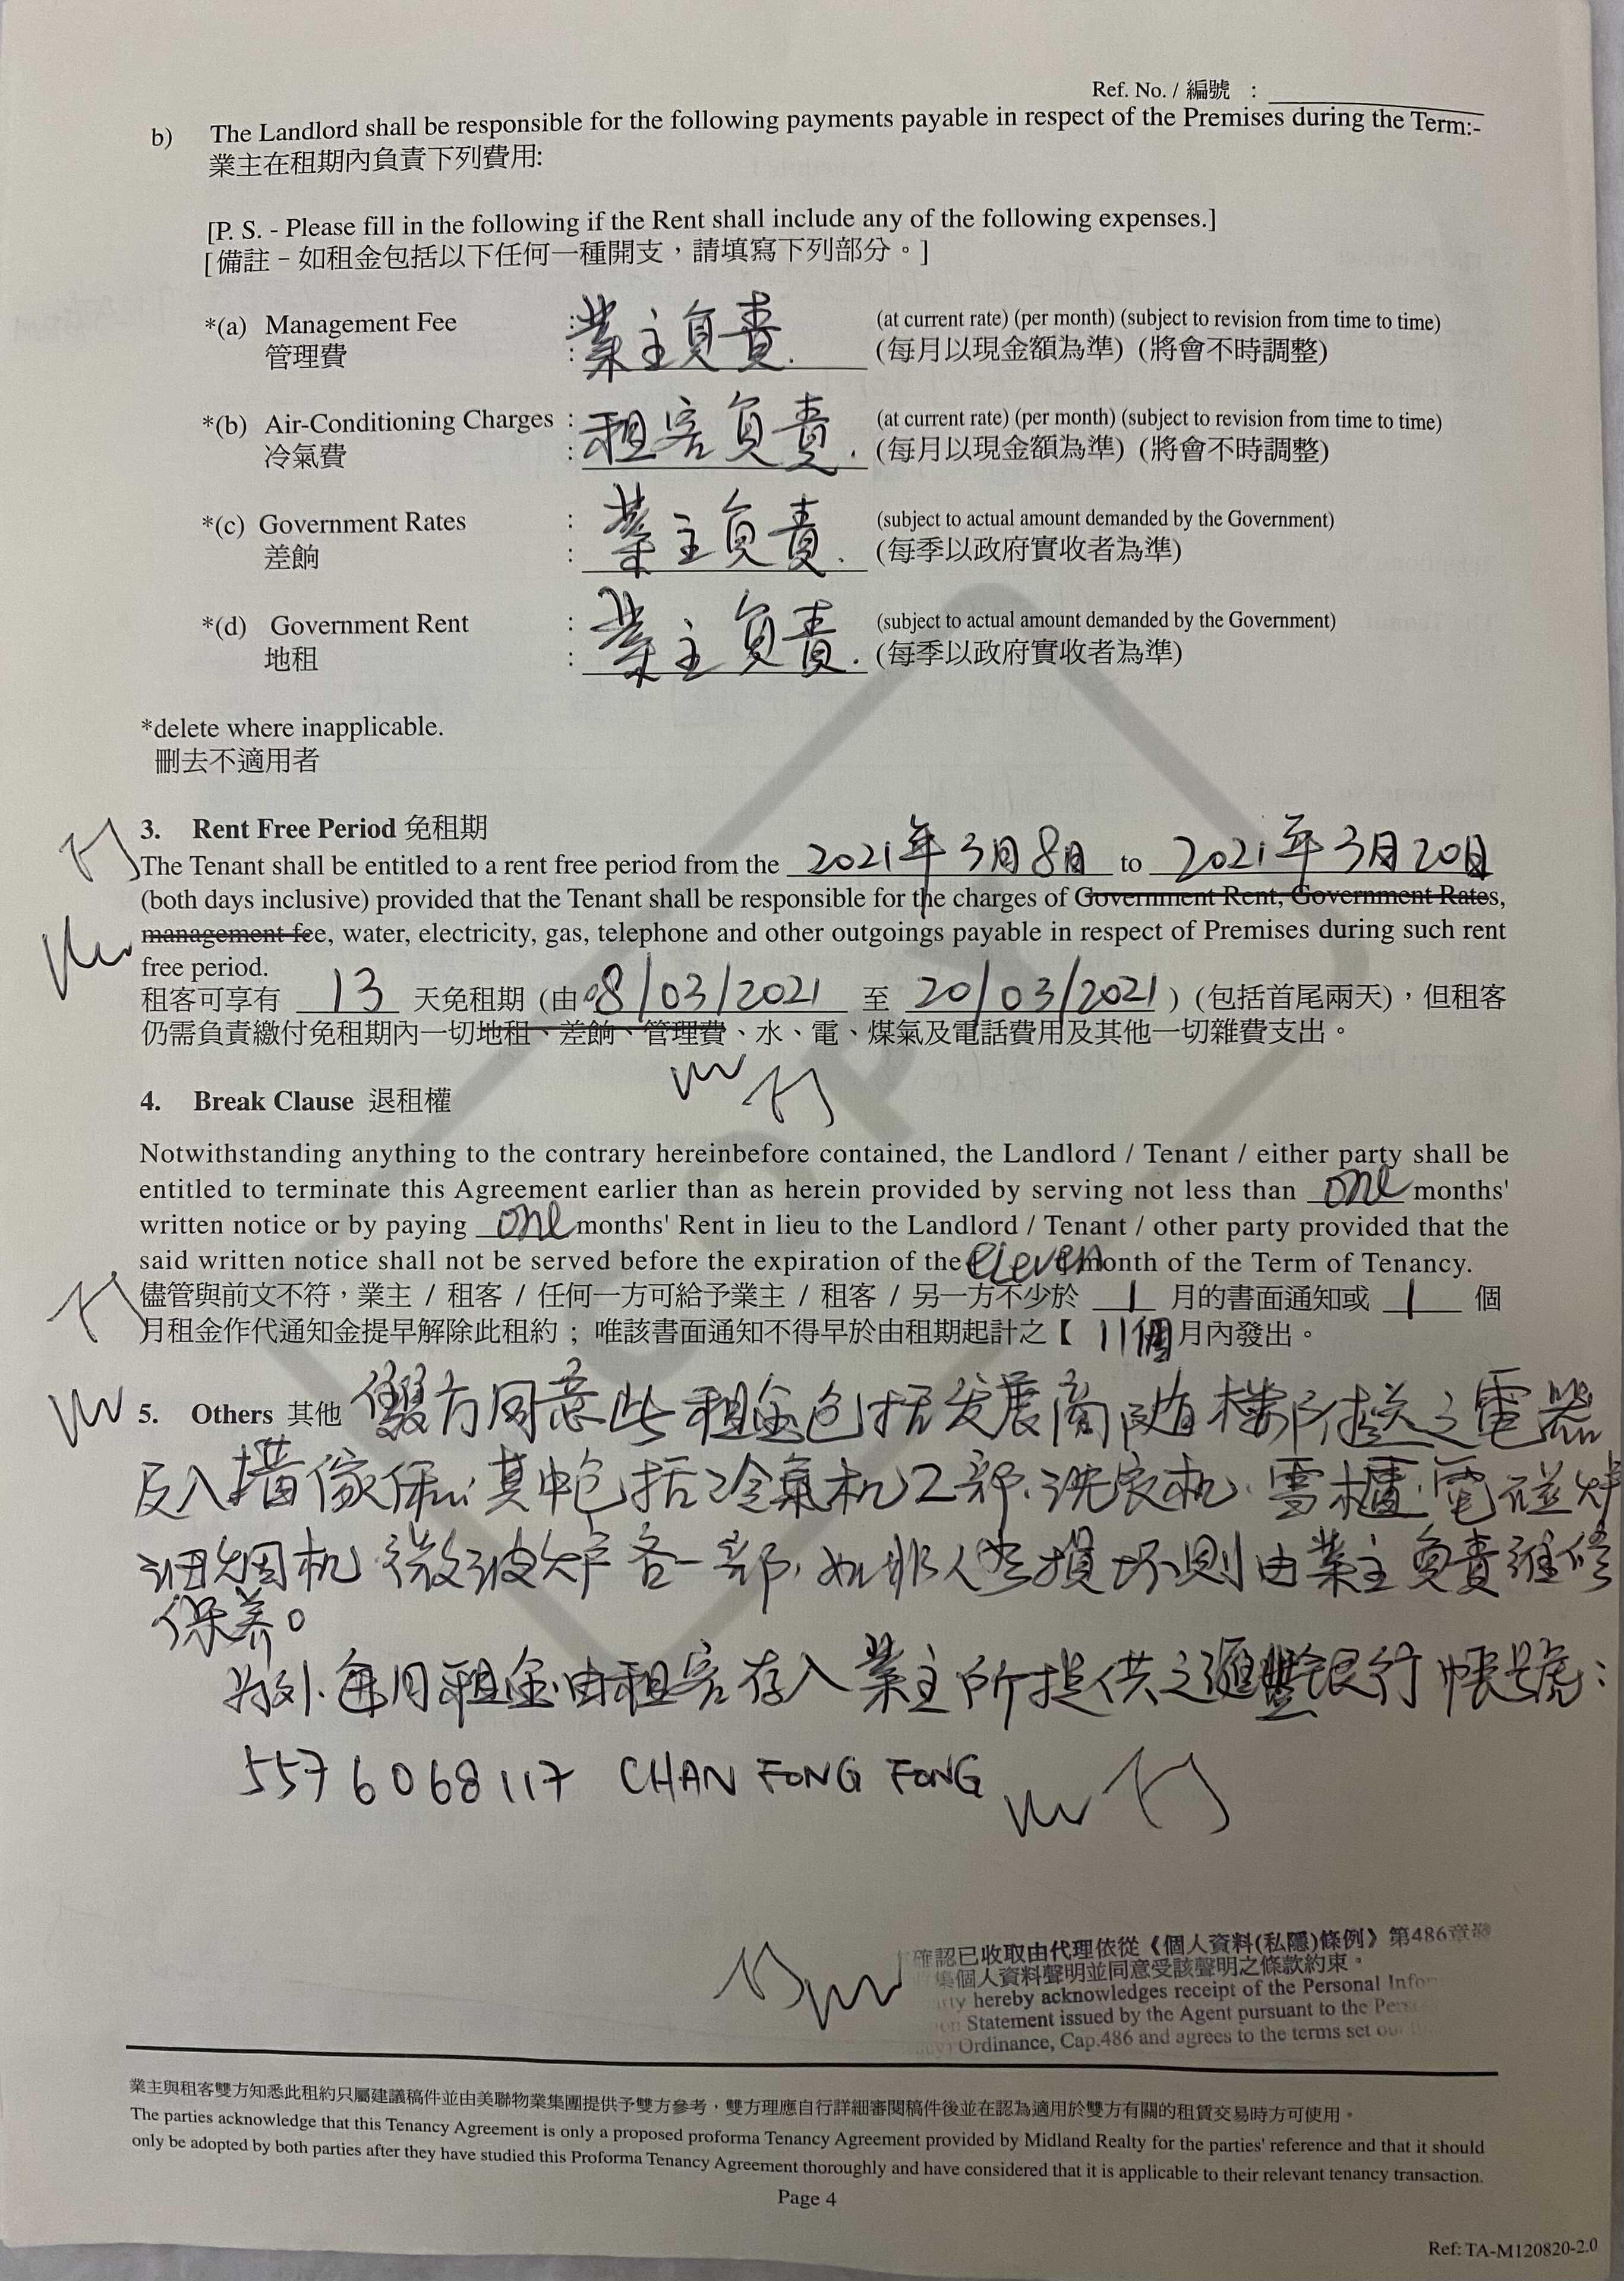 Ref. No. / 編號 :
b) The Landlord shall be responsible for the following payments payable in respect of the Premises during the Term:-
業主在租期內負責下列費用:
[P. S. - Please fill in the following if the Rent shall include any of the following expenses.]
[備註－如租金包括以下任何一種開支，請填寫下列部分。]
*(a) Management Fee : 業主負責. (at current rate) (per month) (subject to revision from time to time)
管理費 : (每月以現金額為準) (將會不時調整)
*(b) Air-Conditioning Charges : 租客負責. (at current rate) (per month) (subject to revision from time to time)
冷氣費 : (每月以現金額為準) (將會不時調整)
*(c) Government Rates : 業主負責. (subject to actual amount demanded by the Government)
差餉 : (每季以政府實收者為準)
*(d) Government Rent : 業主負責. (subject to actual amount demanded by the Government)
地租 : (每季以政府實收者為準)
*delete where inapplicable.
刪去不適用者
3. Rent Free Period 免租期
The Tenant shall be entitled to a rent free period from the 2021年3月8日 to 2021年3月20日
(both days inclusive) provided that the Tenant shall be responsible for the charges of Government Rent, Government Rates,
management fee, water, electricity, gas, telephone and other outgoings payable in respect of Premises during such rent
free period.
租客可享有 13 天免租期 (由 08/03/2021 至 20/03/2021 ) (包括首尾兩天)，但租客
仍需負責繳付免租期內一切地租、差餉、管理費、水、電、煤氣及電話費用及其他一切雜費支出。
4. Break Clause 退租權
Notwithstanding anything to the contrary hereinbefore contained, the Landlord / Tenant / either party shall be
entitled to terminate this Agreement earlier than as herein provided by serving not less than one months'
written notice or by paying one months' Rent in lieu to the Landlord / Tenant / other party provided that the
said written notice shall not be served before the expiration of the eleven month of the Term of Tenancy.
儘管與前文不符，業主 / 租客 / 任何一方可給予業主 / 租客 / 另一方不少於 1 月的書面通知或 1 個
月租金作代通知金提早解除此租約；唯該書面通知不得早於由租期起計之【 11個月內發出。
5. Others 其他 雙方同意此租金包括发展商随樓附送之電器
及入牆傢俬，其中包括冷氣机2部，洗衣机，雪櫃，電磁炉
烟机 微波炉各一部，如非人為損坏，則由業主負責維修
保养。
另外，每月租金由租客存入業主所提供之滙豐銀行帳號：
5576068117 CHAN FONG FONG
確認已收取由代理依從《個人資料(私隱)條例》第486章
集個人資料聲明並同意受該聲明之條款約束。
hereby acknowledges receipt of the Personal
Statement issued by the Agent pursuant to the
Ordinance, Cap.486 and agrees to the terms set
業主與租客雙方知悉此租約只屬建議稿件並由美聯物業集團提供予雙方參考，雙方理應自行詳細審閱稿件後並在認為適用於雙方有關的租賃交易時方可使用。
The parties acknowledge that this Tenancy Agreement is only a proposed proforma Tenancy Agreement provided by Midland Realty for the parties' reference and that it should
only be adopted by both parties after they have studied this Proforma Tenancy Agreement thoroughly and have considered that it is applicable to their relevant tenancy transaction.
Page 4
Ref: TA-M120820-2.0
COPY